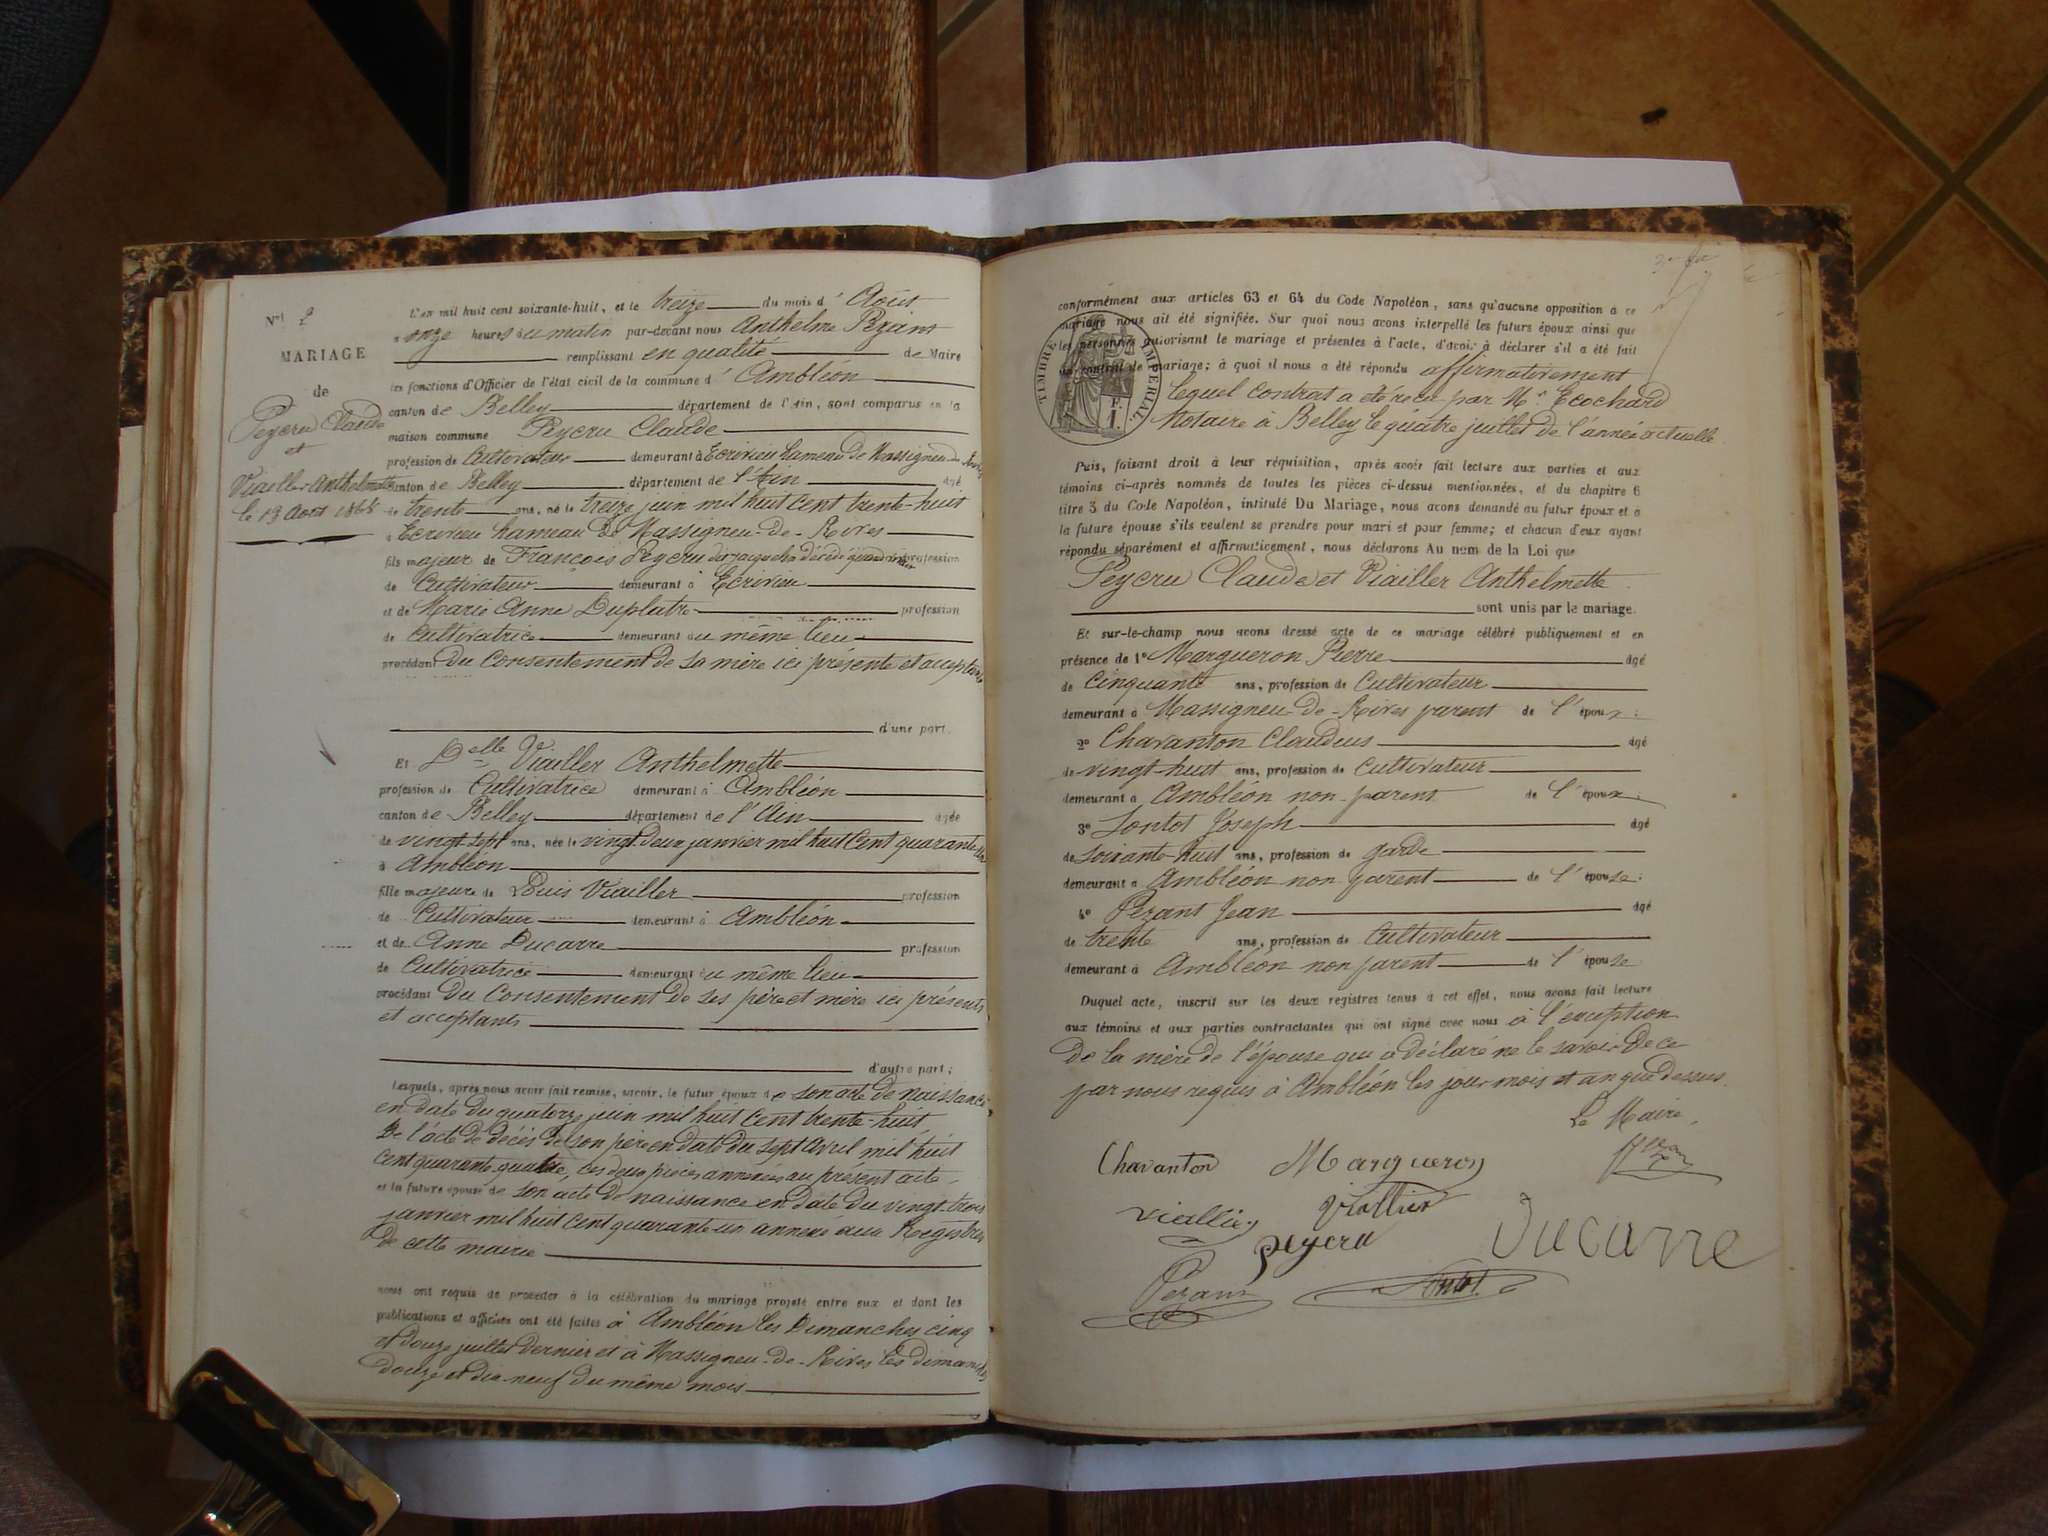 N° 2
MARIAGE
de
Peycru Claude
et
Viailler Anthelmette
le 13 Août 1868
L'an mil huit cent soixante-huit, et le treize du mois d' Août
à onze heures du matin par-devant nous Anthelme Pezant
remplissant en qualité de Maire
les fonctions d'Officier de l'état civil de la commune d' Ambléon
canton de Belley département de l'Ain, sont comparus en la
maison commune Peycru Claude
profession de Cultivateur demeurant à Ecrivieu hameau de Massigneu de Rives
canton de Belley département de l'Ain âgé
de trente ans, né le treize juin mil huit cent trente-huit
à Ecrivieu hameau de Massigneu-de-Rives
fils majeur de François Peycru décédé profession
de Cultivateur demeurant à Ecrivieu
et de Marie Anne Duplatre profession
de Cultivatrice demeurant au même lieu
procédant du consentement de sa mère ici présente et acceptante
d'une part.
Et Delle Viailler Anthelmette
profession de Cultivatrice demeurant à Ambléon
canton de Belley département de l'Ain âgée
de vingt sept ans, née le vingt deux janvier mil huit cent quarante un
à Ambléon
fille majeure de Louis Viailler profession
de Cultivateur demeurant à Ambléon
et de Anne Ducarre profession
de Cultivatrice demeurant au même lieu
procédant du consentement de ses père et mère ici présents
et acceptants
d'autre part;
Lesquels, après nous avoir fait remise, savoir, le futur époux de son acte de naissance
en date du quatorze juin mil huit cent trente-huit
De l'acte de décès de son père en date du sept avril mil huit
cent quarante quatre, ces deux pièces annexées au présent acte,
et la future épouse de son acte de naissance en date du vingt trois
janvier mil huit cent quarante un annexé aux Registres
de cette mairie
nous ont requis de procéder à la célébration du mariage projeté entre eux et dont les
publications et affiches ont été faites à Ambléon les Dimanches cinq
et douze juillet dernier et à Massigneu-de-Rives les dimanches
douze et dix-neuf du même mois
conformément aux articles 63 et 64 du Code Napoléon, sans qu'aucune opposition à ce
mariage nous ait été signifiée. Sur quoi nous avons interpellé les futurs époux ainsi que
les personnes autorisant le mariage et présentes à l'acte, d'avoir à déclarer s'il a été fait
un contrat de mariage; à quoi il nous a été répondu affirmativement
TIMBRE IMPÉRIAL
1 F.
lequel contrat a été reçu par Me Ecochard
Notaire à Belley le quatre juillet de l'année actuelle
Puis, faisant droit à leur réquisition, après avoir fait lecture aux parties et aux
témoins ci-après nommés de toutes les pièces ci-dessus mentionnées, et du chapitre 6
titre 3 du Code Napoléon, intitulé Du Mariage, nous avons demandé au futur époux et à
la future épouse s'ils veulent se prendre pour mari et pour femme; et chacun d'eux ayant
répondu séparément et affirmativement, nous déclarons Au nom de la Loi que
Peycru Claude et Viailler Anthelmette
sont unis par le mariage.
Et sur-le-champ nous avons dressé acte de ce mariage célébré publiquement et en
présence de 1° Margueron Pierre âgé
de cinquante ans, profession de Cultivateur
demeurant à Massigneu-de-Rives parent de l'époux;
2° Chavanton Claudius âgé
de vingt-huit ans, profession de Cultivateur
demeurant à Ambléon non parent de l'époux;
3° Sontot Joseph âgé
de soixante-huit ans, profession de garde
demeurant à Ambléon non parent de l'épouse;
4° Pezant Jean âgé
de trente ans, profession de Cultivateur
demeurant à Ambléon non parent de l'épouse
Duquel acte, inscrit sur les deux registres tenus à cet effet, nous avons fait lecture
aux témoins et aux parties contractantes qui ont signé avec nous à l'exception
de la mère de l'épouse qui a déclaré ne le savoir de ce
par nous requis à Ambléon les jour mois et an que dessus.
Le Maire,
Chavanton Margueron
Viallier Viallier
Peycru Ducarre
Pezant